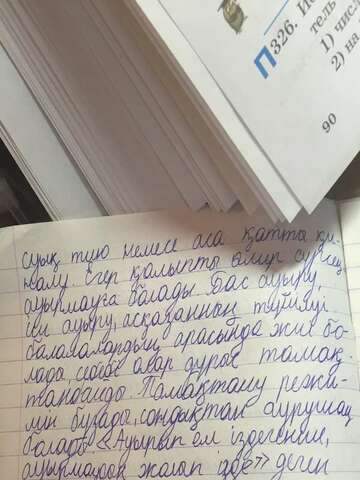 П 326. Ис
тель
1) числ
2) на
90
суық тию немесе аса қатты қи-
налу. Егер қалыпты өмір сүрсең
ауырмауға болады. Бас ауыру,
іш ауыру, асқазанның түйілуі
балалардың арасында жиі бо-
лады, себебі олар дұрыс тамақ
танбайды. Тамақтану режи-
мін бұзады, сондықтан бүрушақ
болады. «Ауырып ем іздегенше,
ауырмаудың жолын ізде» деген